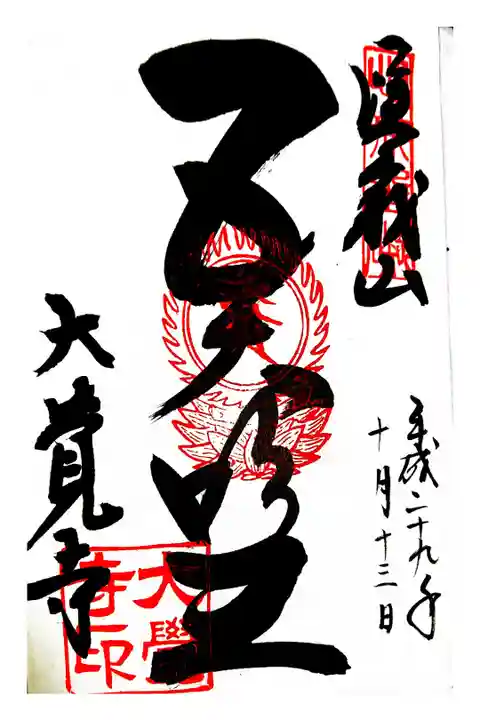 嵯峨山
平成二十九年
十月十三日
五大明王
大覺寺
大覺
寺印